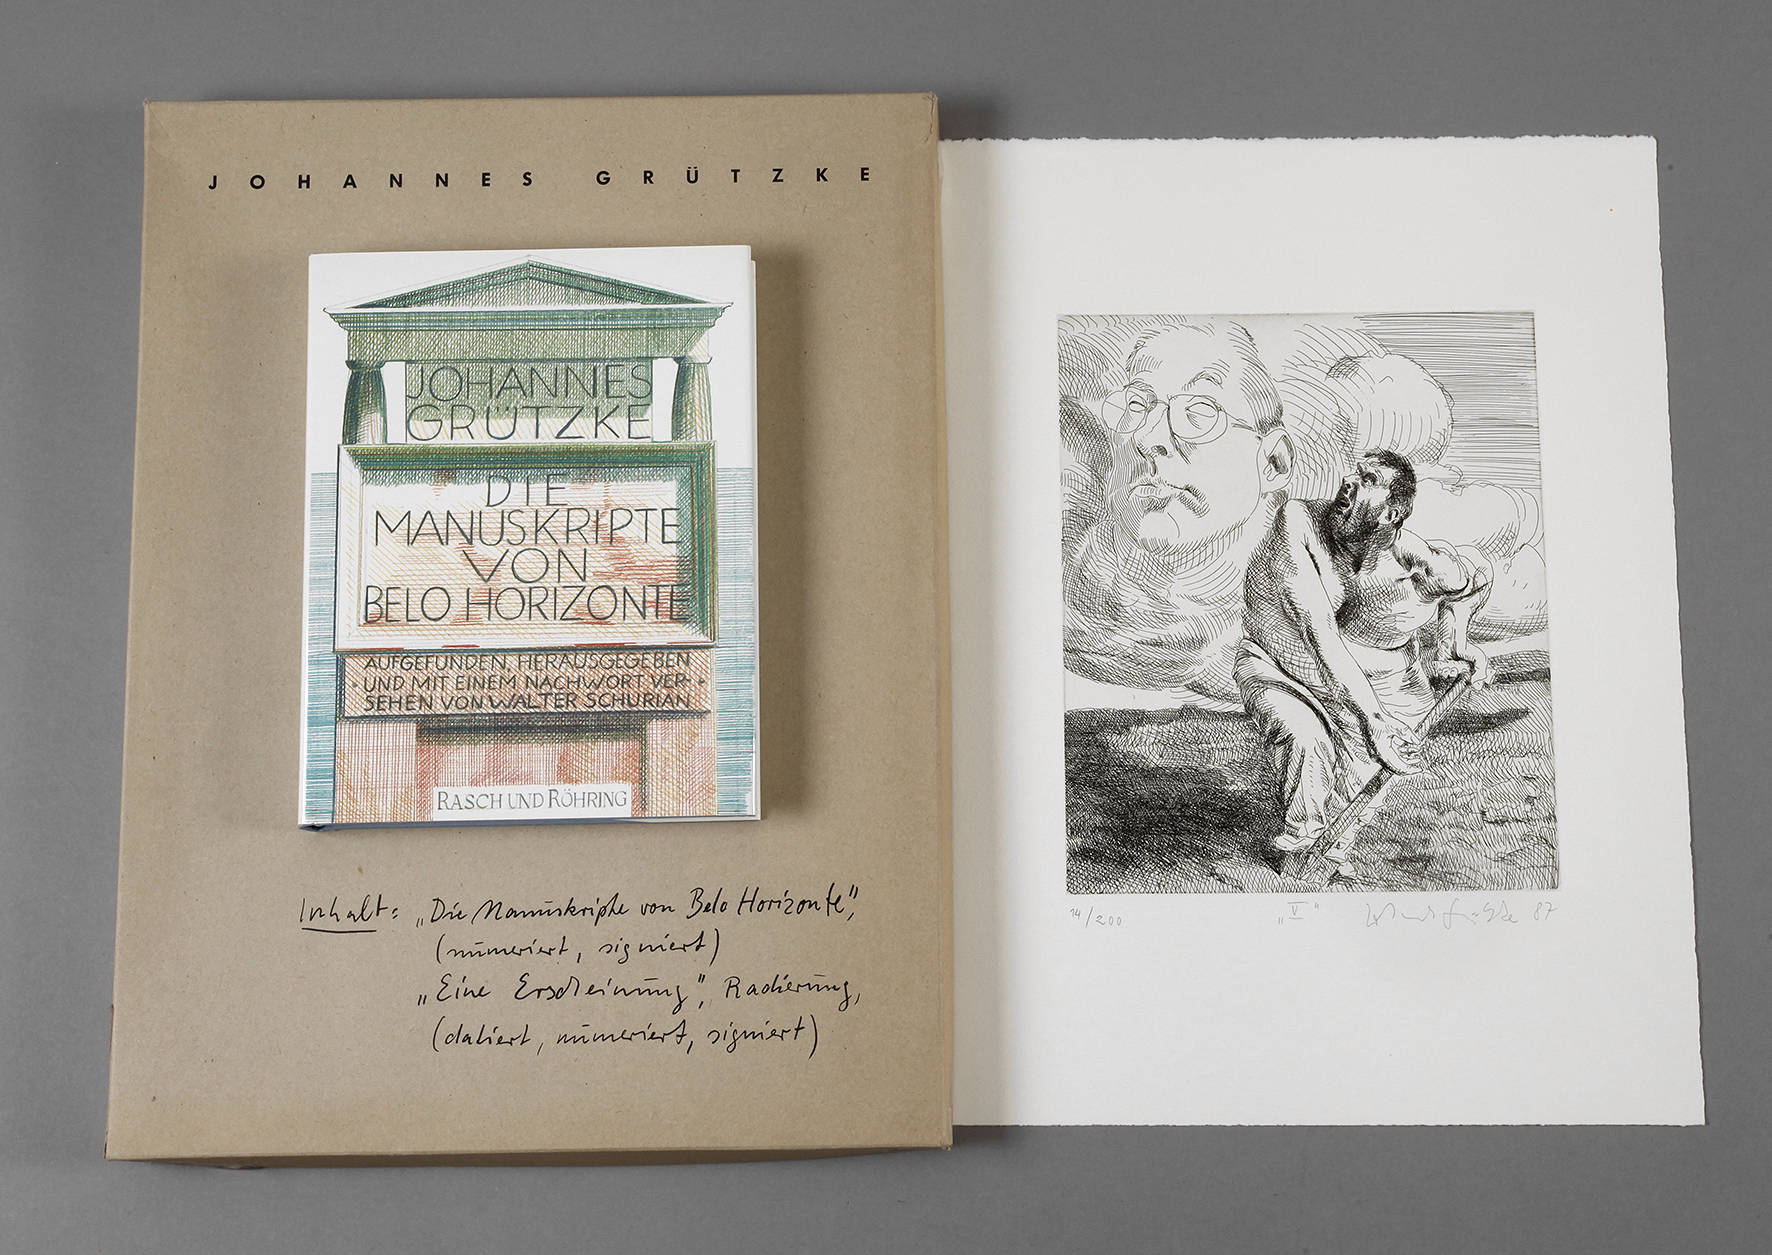 JOHANNES GRÜTZKE
JOHANNES
GRÜTZKE
DIE
MANUSKRIPTE
VON
BELO HORIZONTE
AUFGEFUNDEN, HERAUSGEGEBEN
UND MIT EINEM NACHWORT VER-
SEHEN VON WALTER SCHURIAN
RASCH UND RÖHRING
Inhalt: „Die Manuskripte von Belo Horizonte",
(numeriert, signiert)
„Eine Erscheinung", Radierung,
(datiert, numeriert, signiert)
14/200 „V" 87